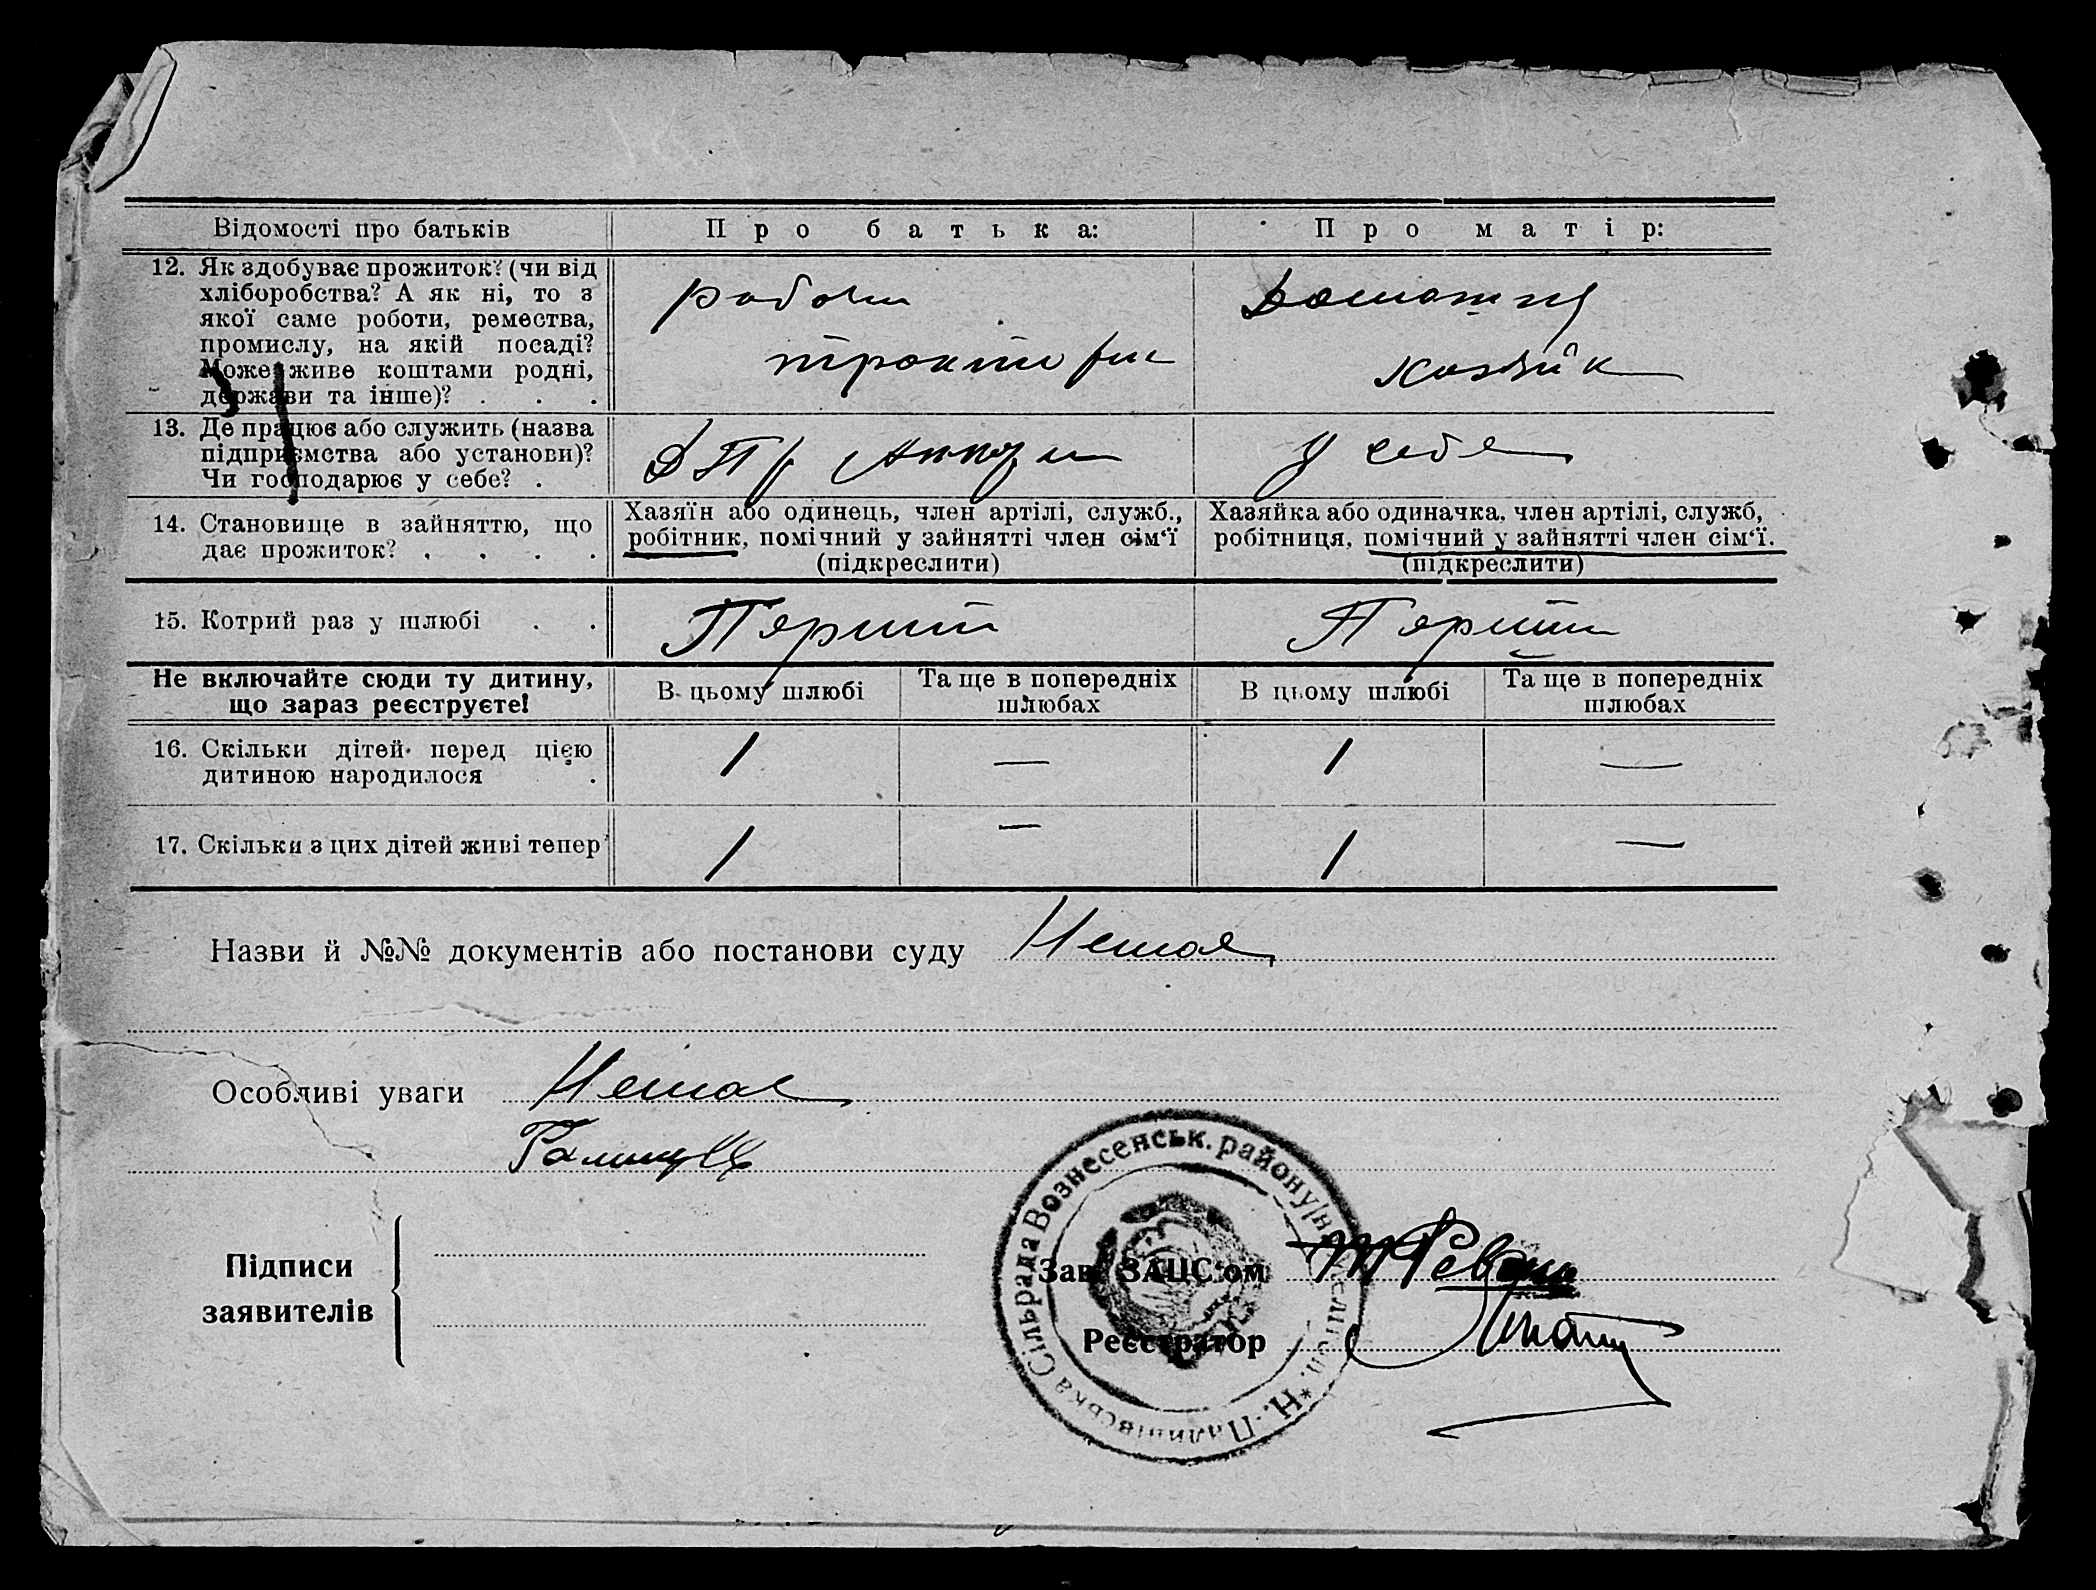 Відомості про батьків
Про батька:
Про матір:
12. Як здобуває прожиток? (чи від
хліборобства? А як ні, то з
якої саме роботи, ремества,
промислу, на якій посаді?
Може живе коштами родні,
держави та інше)? . . .
13. Де працює або служить (назва
підприємства або установи)?
Чи господарює у себе? .
у себе
14. Становище в зайняттю, що
дає прожиток? . . . .
Хазяїн або одинець, член артілі, служб.,
робітник, помічний у зайнятті член сім'ї
(підкреслити)
Хазяйка або одиначка, член артілі, служб,
робітниця, помічний у зайнятті член сім'ї.
(підкреслити)
15. Котрий раз у шлюбі . .
Не включайте сюди ту дитину,
що зараз реєструєте!
В цьому шлюбі
Та ще в попередніх
шлюбах
В цьому шлюбі
Та ще в попередніх
шлюбах
16. Скільки дітей перед цією
дитиною народилося .
1 — 1 —
17. Скільки з цих дітей живі тепер
1 — 1 —
Назви й №№ документів або постанови суду Немае
Особливі уваги Немае
Підписи
заявителів
Зав. ЗАЦС'ом
Реєстратор
Сільрада Вознесенськ. району